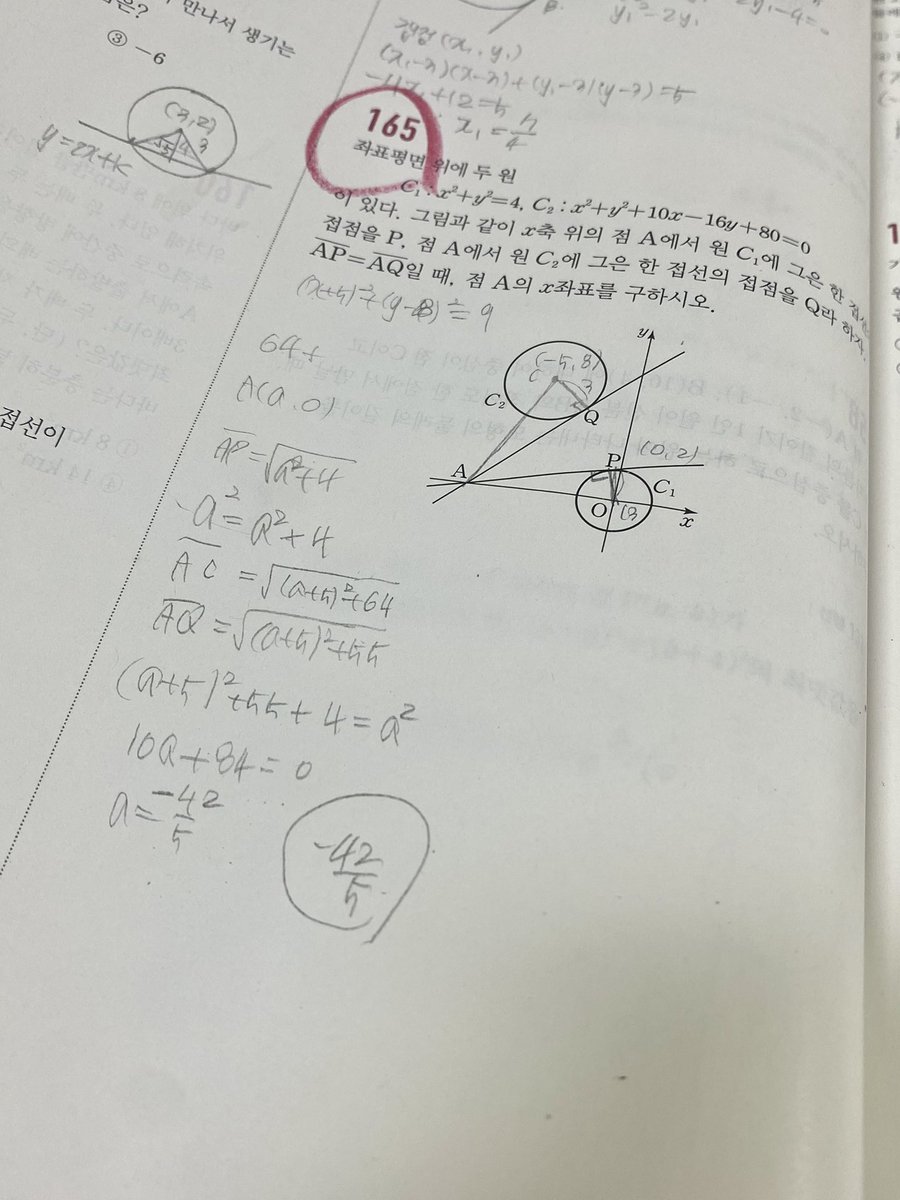 만나서 생기는
③ -6
(3, 2)
3
y=2x+k
접선이
접점(x₁, y₁)
x₁ = 5/4
165
좌표평면 위에 두 원
C₁ : x²+y²=4, C₂ : x²+y²+10x-16y+80=0
이 있다. 그림과 같이 x축 위의 점 A에서 원 C₁에 그은 한 접선의
접점을 P, 점 A에서 원 C₂에 그은 한 접선의 접점을 Q라 하자.
AP=AQ일 때, 점 A의 x좌표를 구하시오.
(x+5)²+(y-8)²=9
64+
A(a, 0)
AP=√a²+4
-a²=a²+4
AC=√(a+5)²+64
AQ=√(a+5)²+55
(a+5)²+55+4=a²
10a+84=0
a=-42/5
-42/5
y
(-5, 8)
C
3
C₂
Q
A
P
(0, 2)
C₁
O
x